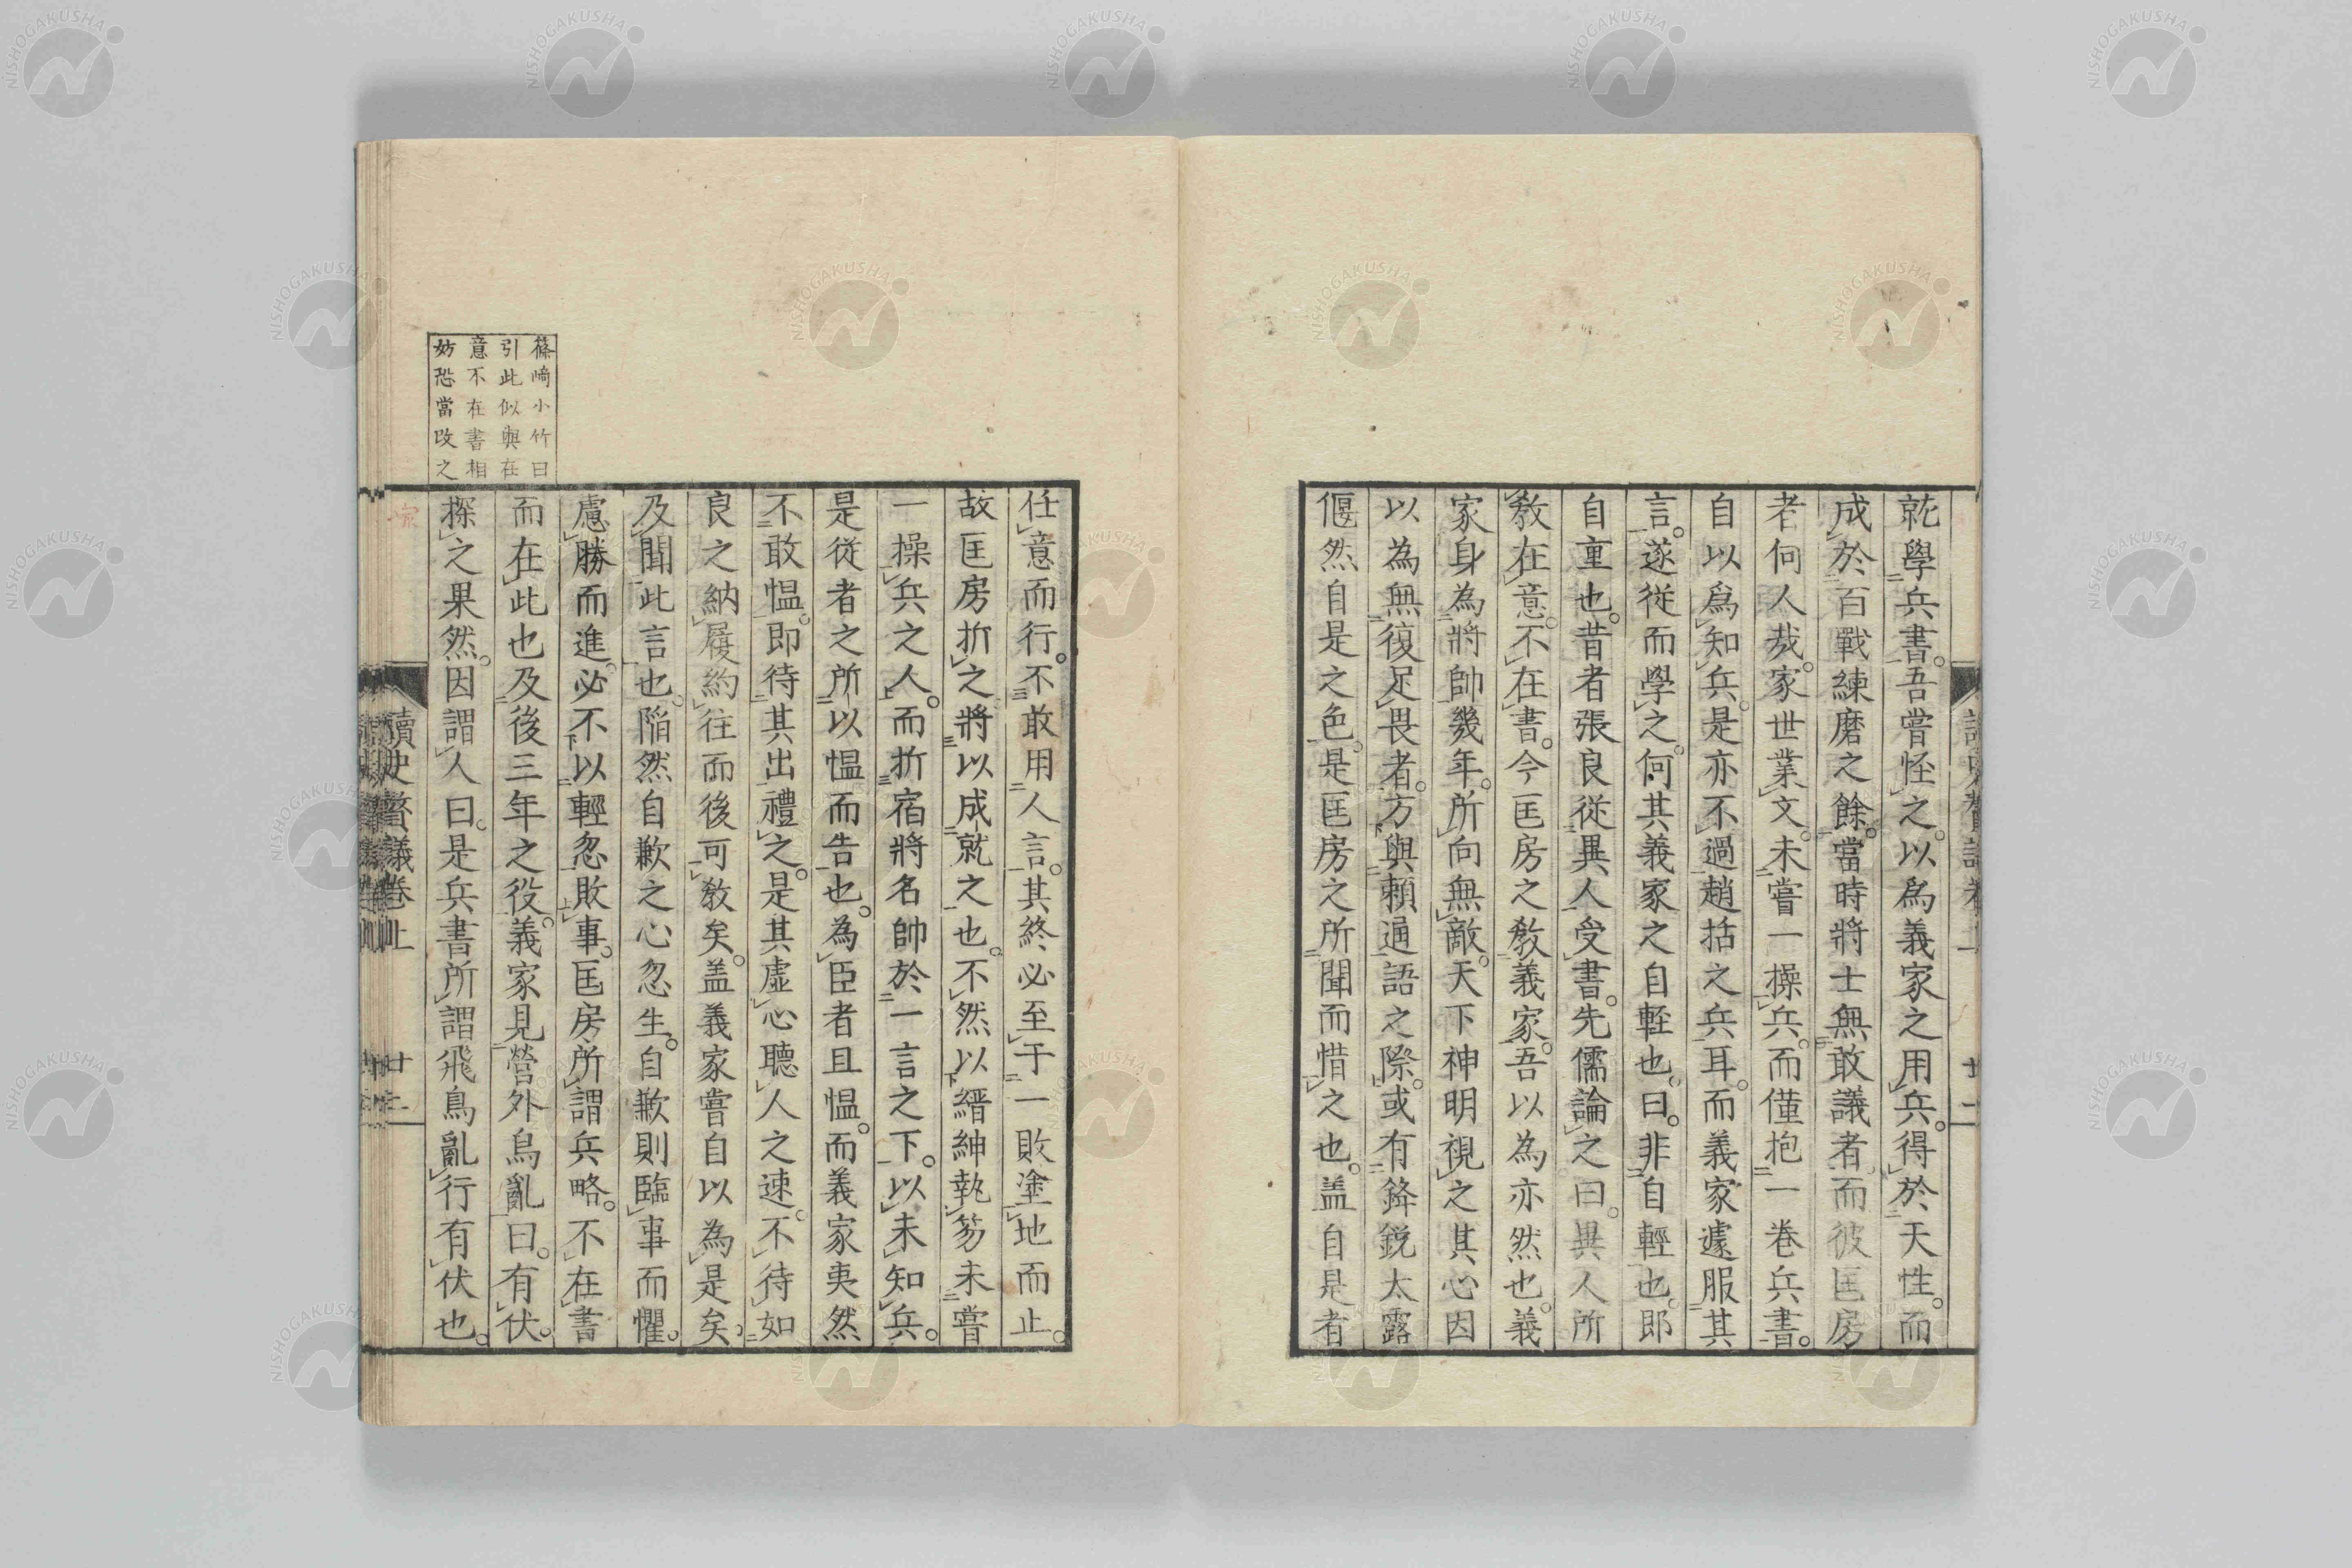 就學兵書。吾嘗怪之。以爲義家之用兵。得於天性。而
成於百戰練磨之餘。當時將士無敢議者。而彼匡房
者何人哉。家世業文。未嘗一操兵。而僅抱一卷兵書。
自以爲知兵。是亦不過趙括之兵耳。而義家遽服其
言。遂從而學之。何其義家之自輕也。曰。非自輕也。即
自重也。昔者張良從異人受書。先儒論之曰。異人所
敎在意。不在書。今匡房之敎義家。吾以為亦然也。義
家身為將帥幾年。所向無敵。天下神明視之。其心因
以為無復足畏者。方與賴通語之際。或有鋒銳太露
偃然自是之色。是匡房之所聞而惜之也。盖自是者
任意而行。不敢用人言。其終必至于一敗塗地而止。
故匡房折之。將以成就之也。不然以縉紳執笏未嘗
一操兵之人。而折宿將名帥於一言之下。以未知兵。
是從者之所以慍而告也。為臣者且慍。而義家夷然
不敢慍。即待其出禮之。是其虛心聽人之速。不待如
良之納履約往而後可敎矣。盖義家嘗自以為是矣。
及聞此言也。陥然自歉之心忽生。自歉則臨事而懼。
慮勝而進。必不以輕忽敗事。匡房所謂兵略。不在書
而在此也。及後三年之役。義家見營外鳥亂曰。有伏。
探之果然。因謂人曰。是兵書所謂飛鳥亂行有伏也。
篠崎小竹曰
引此似與在
意不在書相
妨恐當改之
讀史贅議卷上
廿二